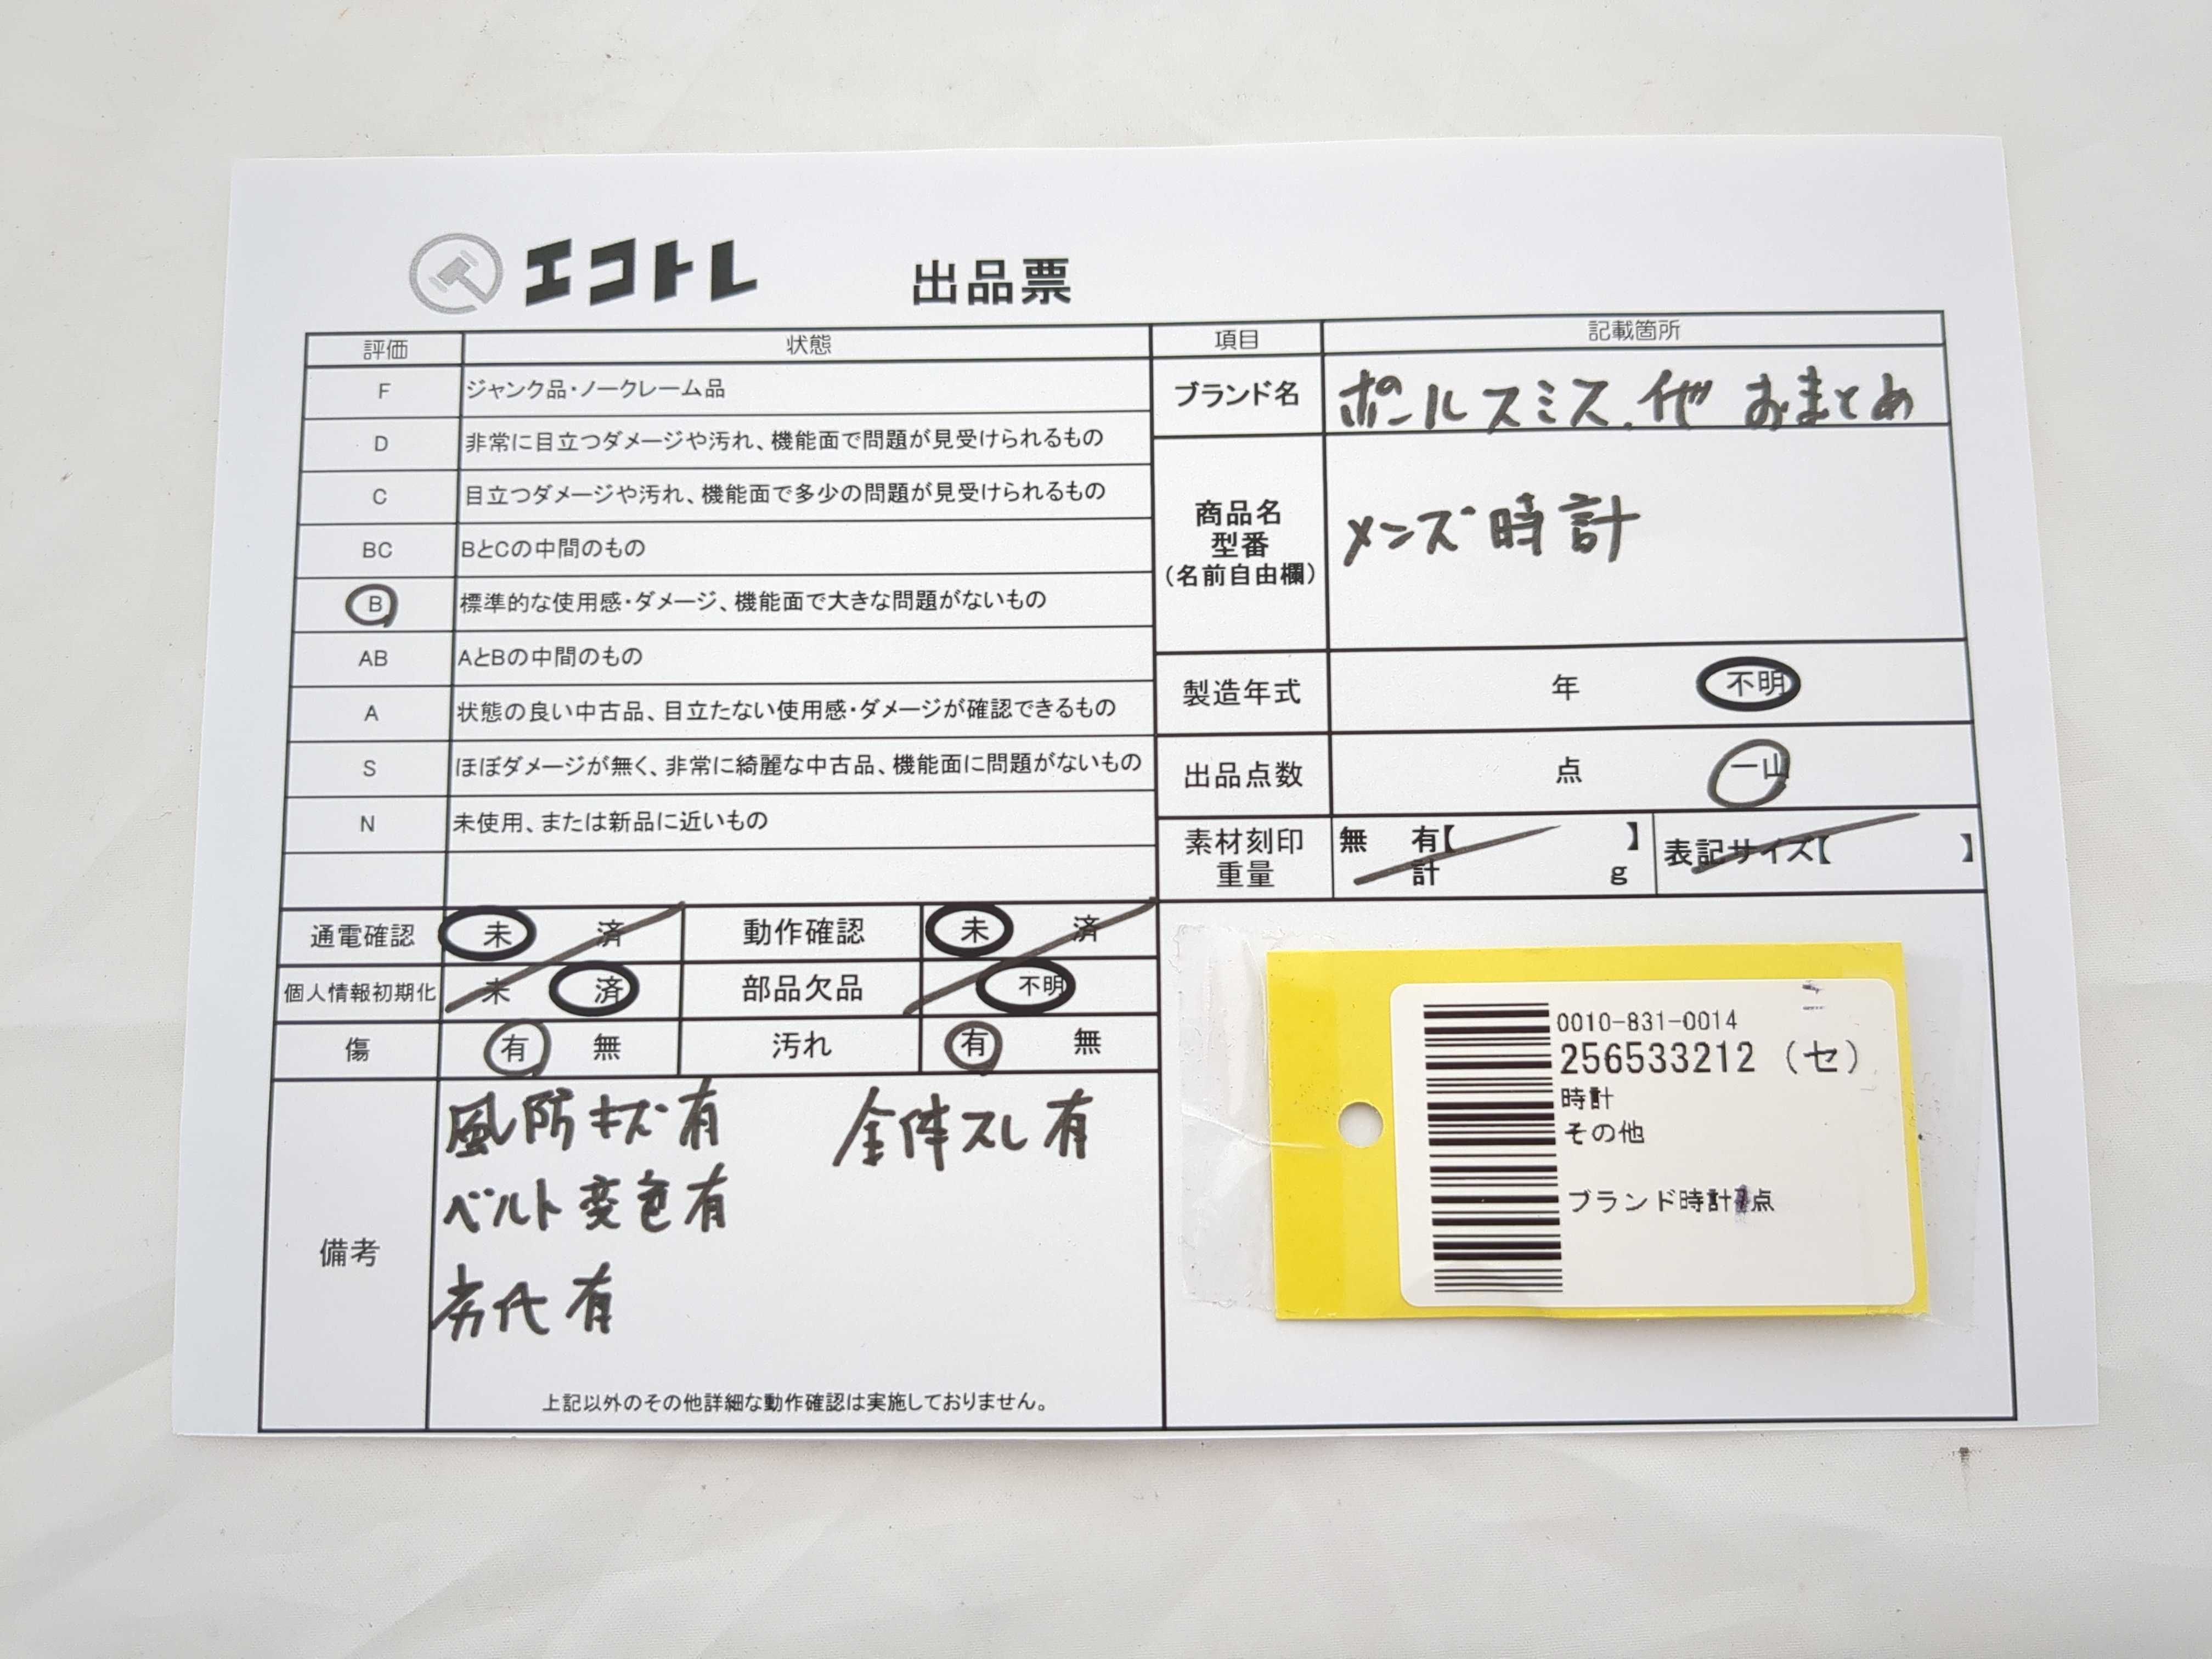 エコトレ 出品票
評価 状態
F ジャンク品・ノークレーム品
D 非常に目立つダメージや汚れ、機能面で問題が見受けられるもの
C 目立つダメージや汚れ、機能面で多少の問題が見受けられるもの
BC BとCの中間のもの
B 標準的な使用感・ダメージ、機能面で大きな問題がないもの
AB AとBの中間のもの
A 状態の良い中古品、目立たない使用感・ダメージが確認できるもの
S ほぼダメージが無く、非常に綺麗な中古品、機能面に問題がないもの
N 未使用、または新品に近いもの
項目 記載箇所
ブランド名 ポールスミス.他 おまとめ
商品名
型番
(名前自由欄)
メンズ時計
製造年式 年 不明
出品点数 点 一山
素材刻印 無 有【 】 表記サイズ【 】
重量 計 g
通電確認 未 済 動作確認 未 済
個人情報初期化 未 済 部品欠品 不明
傷 有 無 汚れ 有 無
備考
風防キズ有 全体スレ有
ベルト変色有
劣化有
上記以外のその他詳細な動作確認は実施しておりません。
0010-831-0014
256533212 (セ)
時計
その他
ブランド時計 点